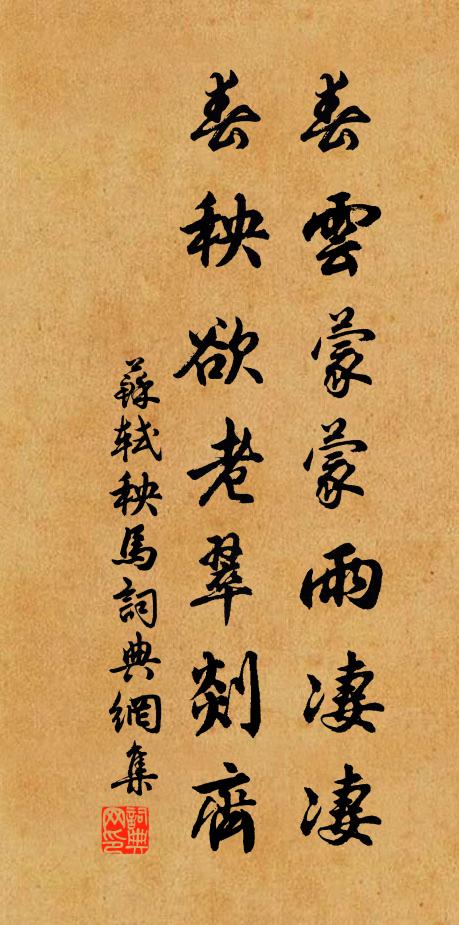 春雲蒙蒙雨凄凄
春秧欲老翠剡齊
蘇軾秧馬詞典網集
詞典网印